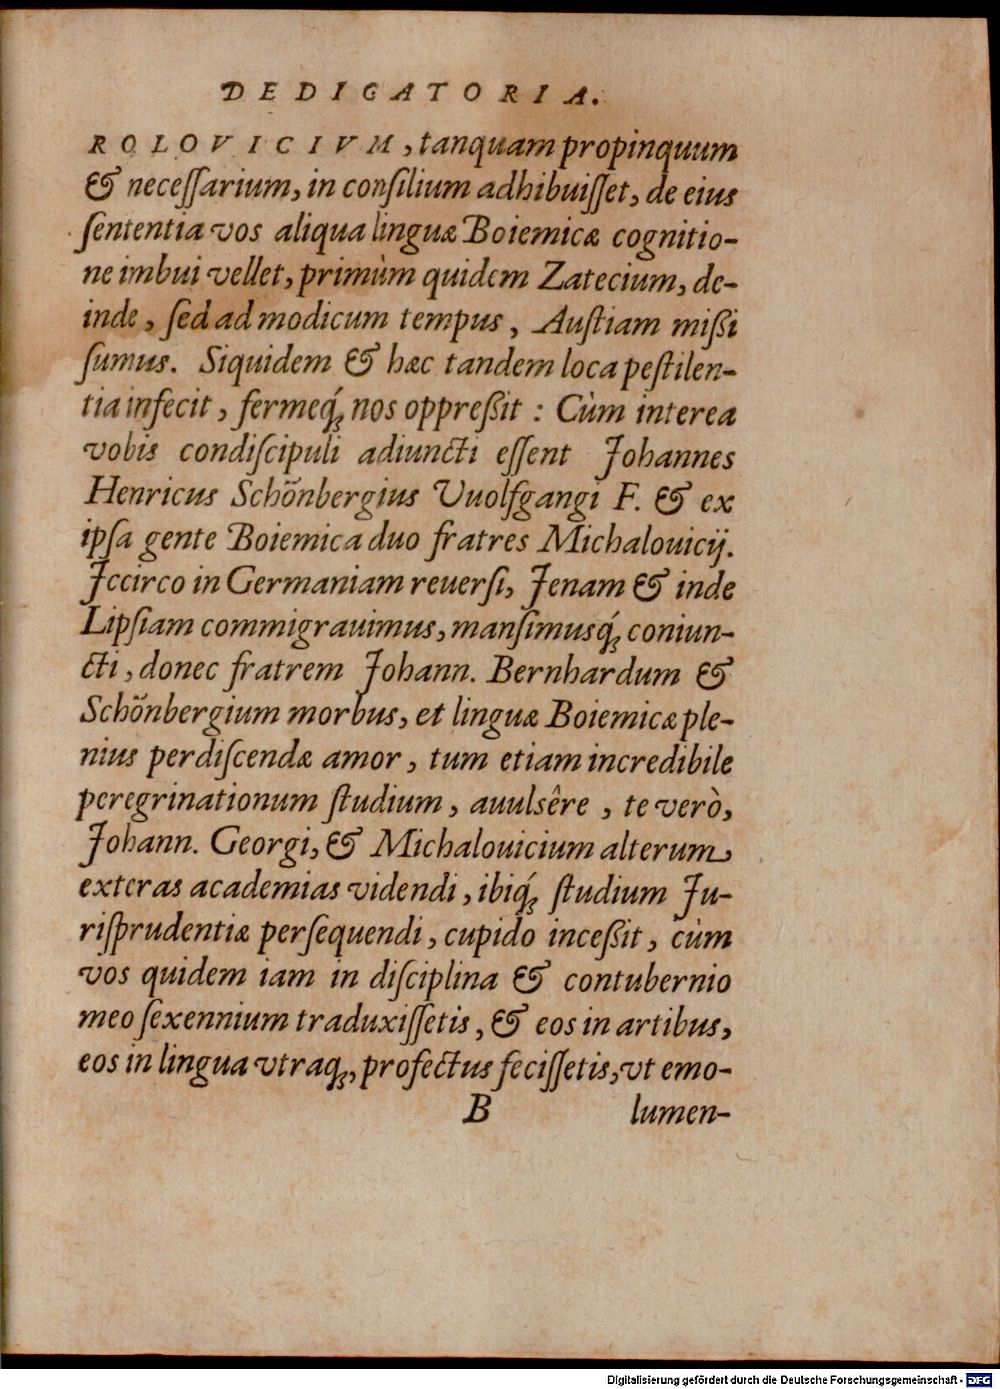 DEDICATORIA.
ROLOVICIVM, tanquam propinquum
& neceſſarium, in conſilium adhibuiſſet, de eius
ſententia vos aliqua linguæ Boiemicæ cognitio-
ne imbui vellet, primùm quidem Zatecium, de-
inde, ſed ad modicum tempus, Auſtiam mißi
ſumus. Siquidem & hæc tandem loca peſtilen-
tia infecit, fermeq́; nos oppreßit : Cùm interea
vobis condiſcipuli adiuncti eſſent Johannes
Henricus Schönbergius Vuolfgangi F. & ex
ipſa gente Boiemica duo fratres Michalouicij.
Jccirco in Germaniam reuerſi, Jenam & inde
Lipſiam commigrauimus, manſimusq́; coniun-
cti, donec fratrem Johann. Bernhardum &
Schönbergium morbus, et linguæ Boiemicæ ple-
nius perdiſcendæ amor, tum etiam incredibile
peregrinationum ſtudium, auulsêre, te verò,
Johann. Georgi, & Michalouicium alterum,
exteras academias videndi, ibiq́; ſtudium Ju-
riſprudentiæ perſequendi, cupido inceßit, cùm
vos quidem iam in diſciplina & contubernio
meo ſexennium traduxiſſetis, & eos in artibus,
eos in lingua vtraq;, profectus feciſſetis, vt emo-
B lumen-
Digitalisierung gefördert durch die Deutsche Forschungsgemeinschaft - DFG